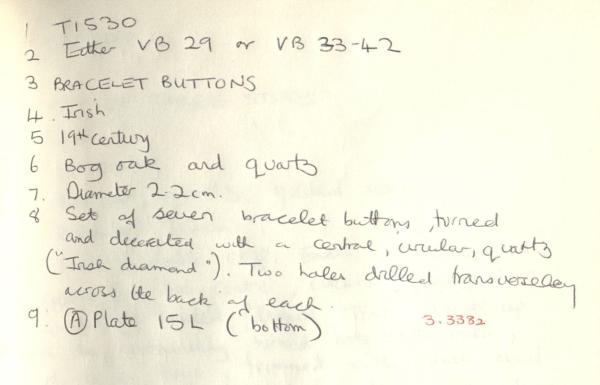 1 T1530
2 Either VB 29 or VB 33-42
3 BRACELET BUTTONS
4. Irish
5 19th century
6 Bog oak and quartz
7. Diameter 2.2cm.
8 Set of seven bracelet buttons, turned
and decorated with a central, circular, quartz
("Irish diamond"). Two holes drilled transversely
across the back of each.
9. (A) Plate 15L (bottom)
3.3332